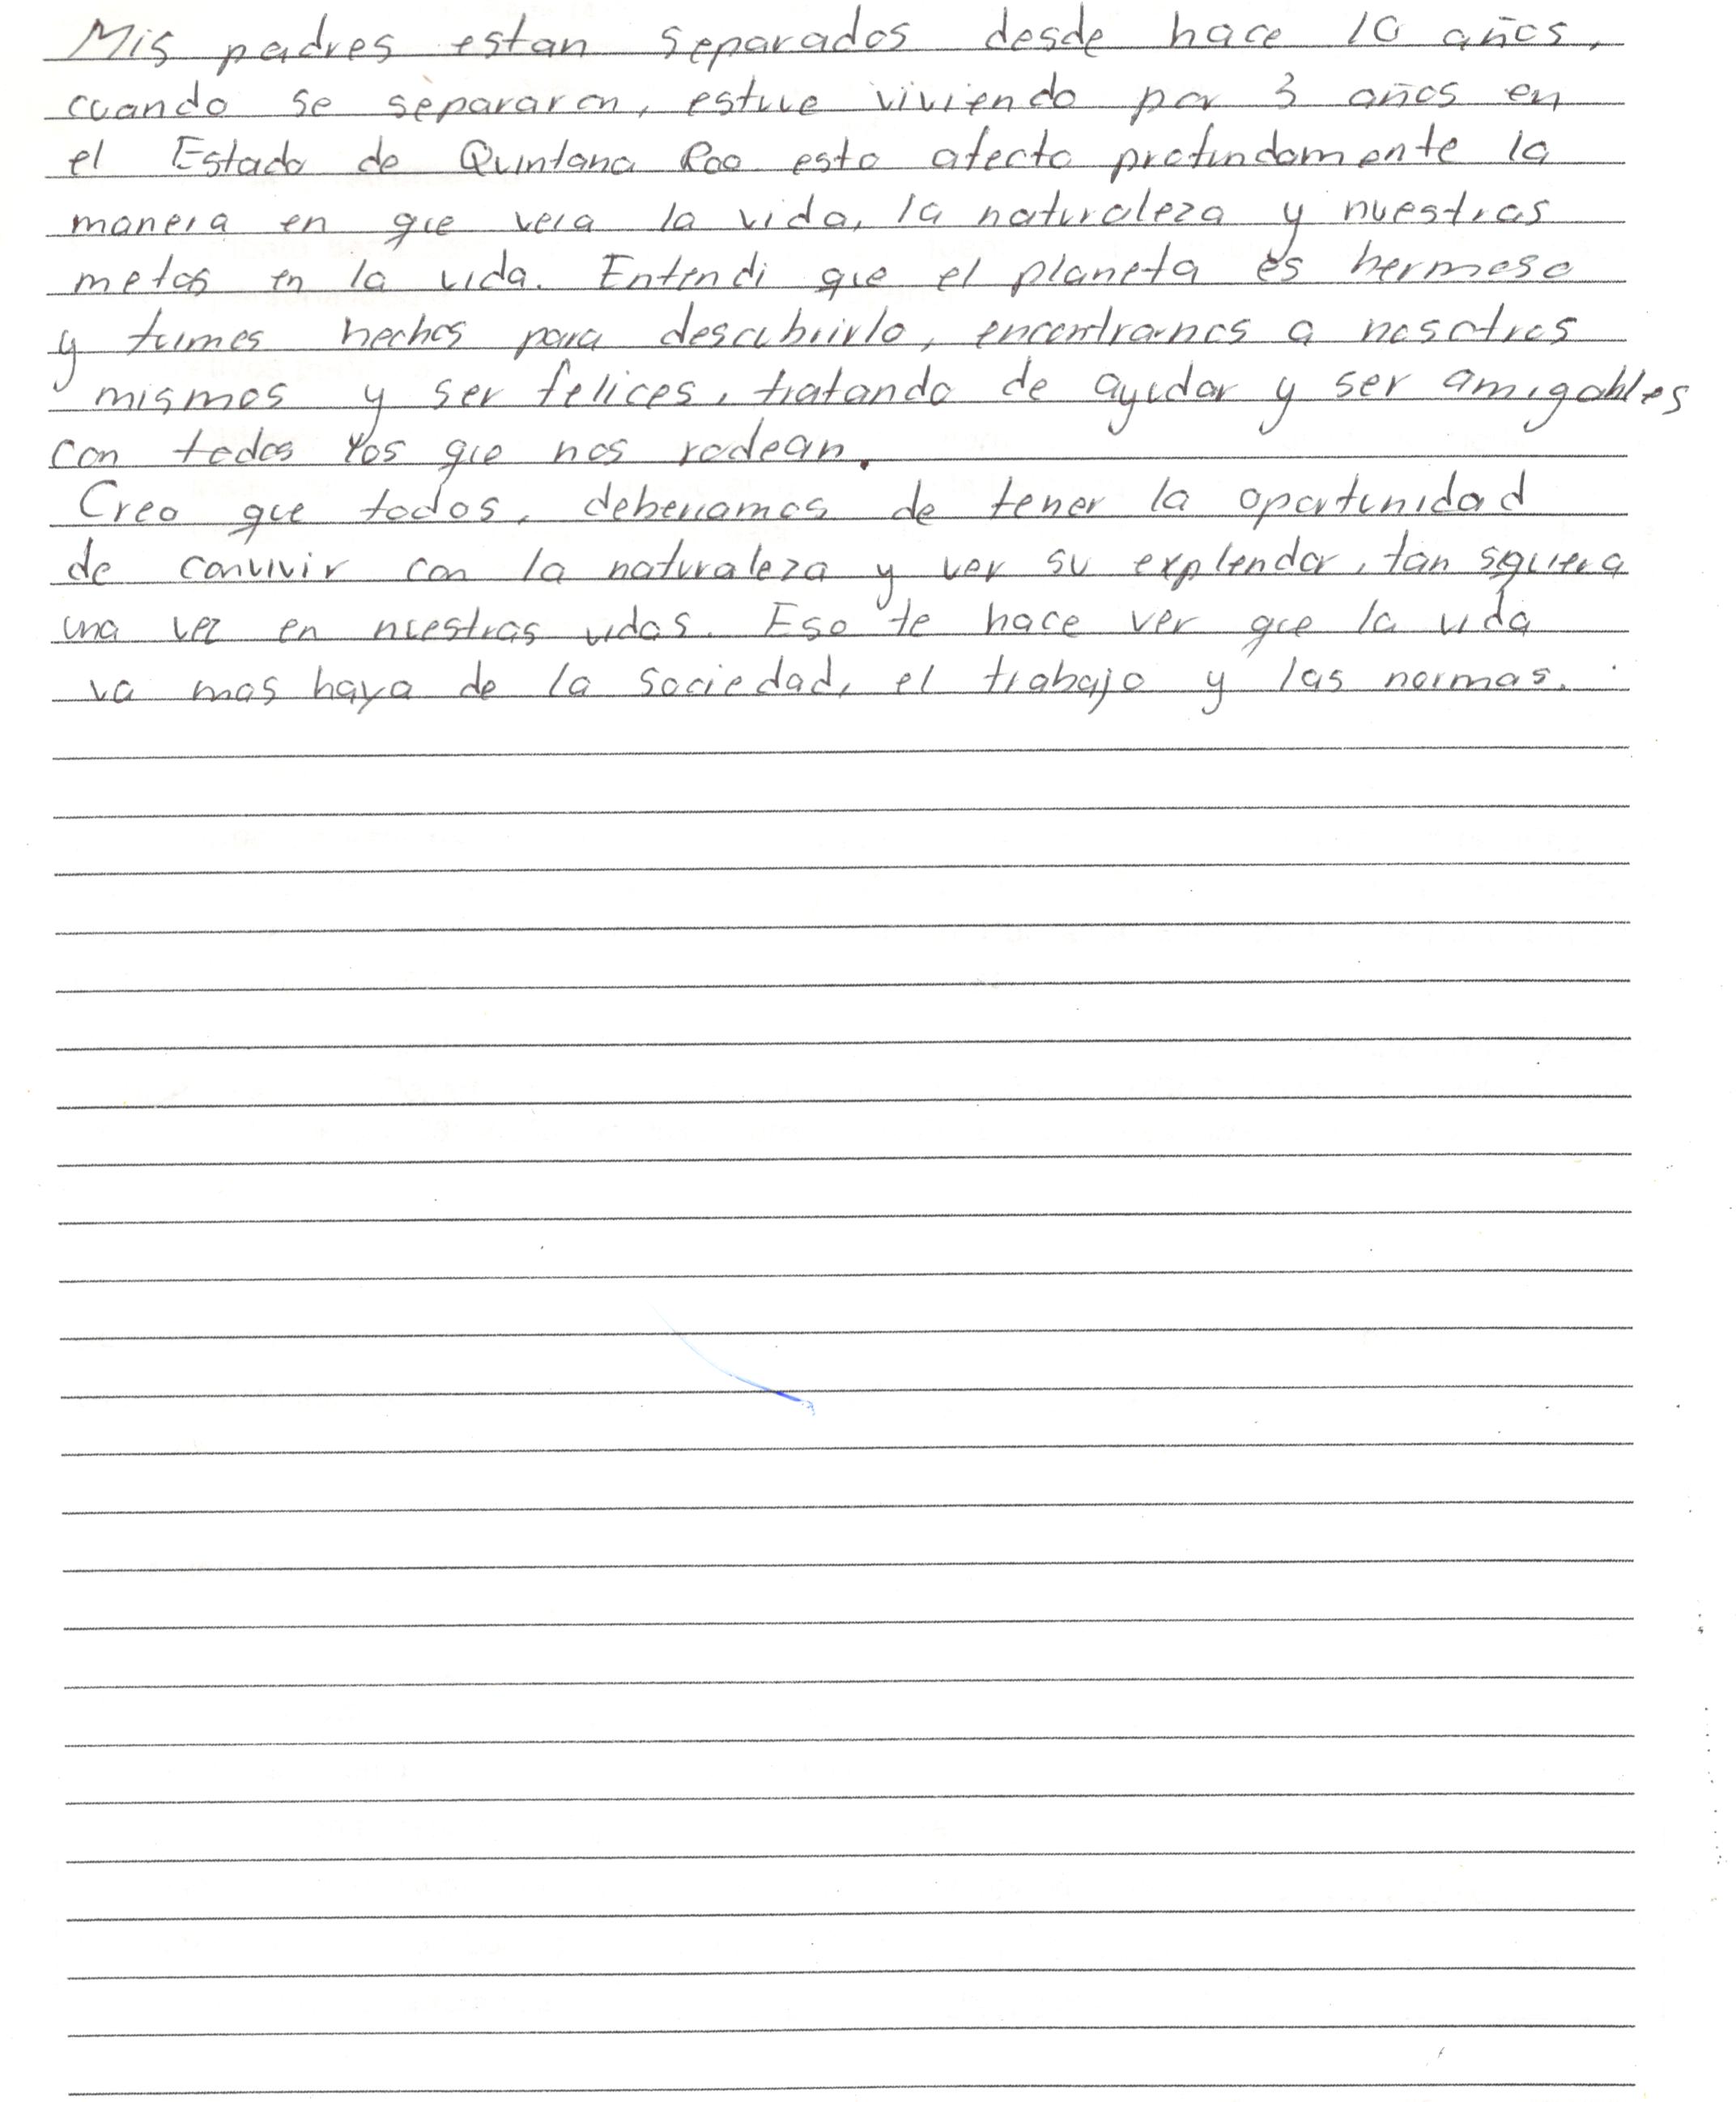 Mis padres estan separados desde hace 10 años,
cuando se separaron, estuve viviendo por 3 años en
el Estado de Quintana Roo esto afecto profundamente la
manera en que veia la vida, la naturaleza y nuestras
metas en la vida. Entendi que el planeta es hermoso
y fuimos hechos para descubrirlo, encontrarnos a nosotros
mismos y ser felices, tratando de ayudar y ser amigables
con todos los que nos rodean.
Creo que todos, deberiamos de tener la oportunidad
de convivir con la naturaleza y ver su explendor, tan siquiera
una vez en nuestras vidas. Eso te hace ver que la vida
va mas haya de la sociedad, el trabajo y las normas.